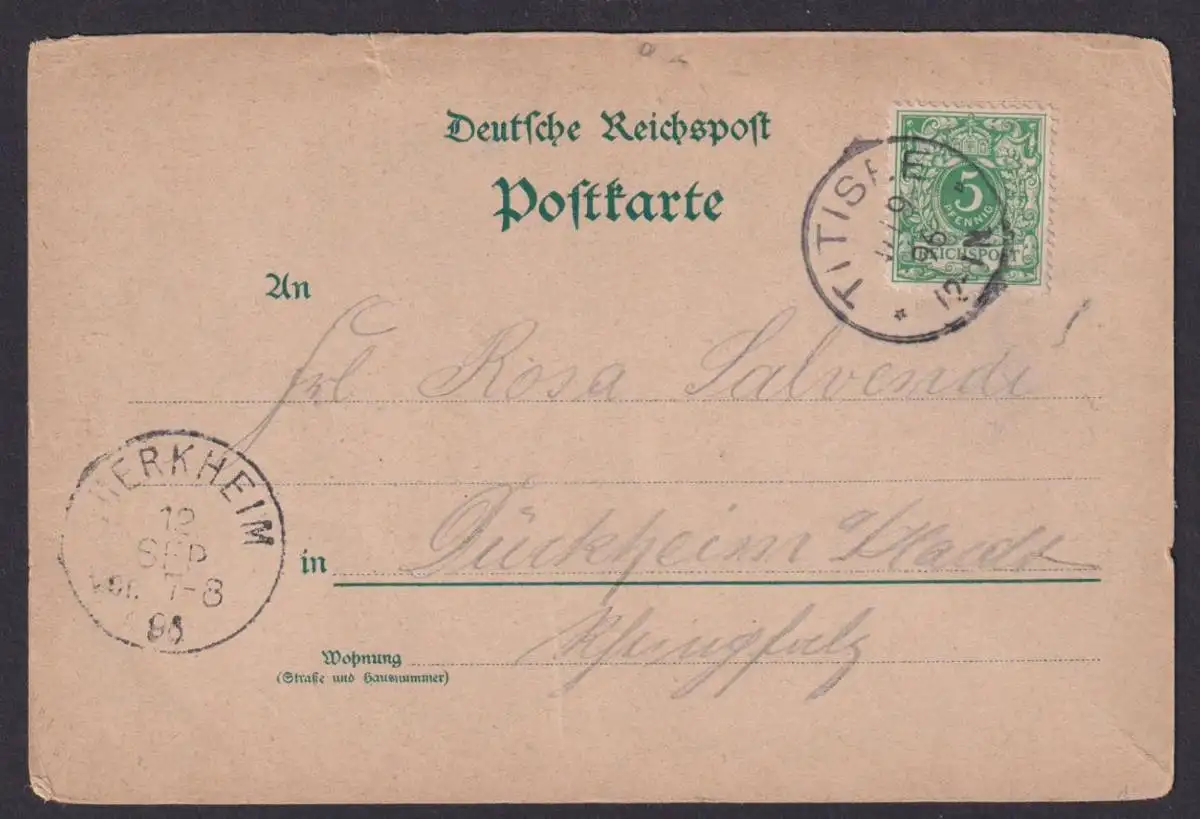 Deutsche Reichspost
Postkarte
5
PFENNIG
REICHSPOST
TITISEE
9
96
12-1N
An
Frl Rosa Salvendi
ERKHEIM
12
SEP
Vor. 7-8
96
in Dürkheim a/Hardt
Rheinpfalz
Wohnung
(Straße und Hausnummer)